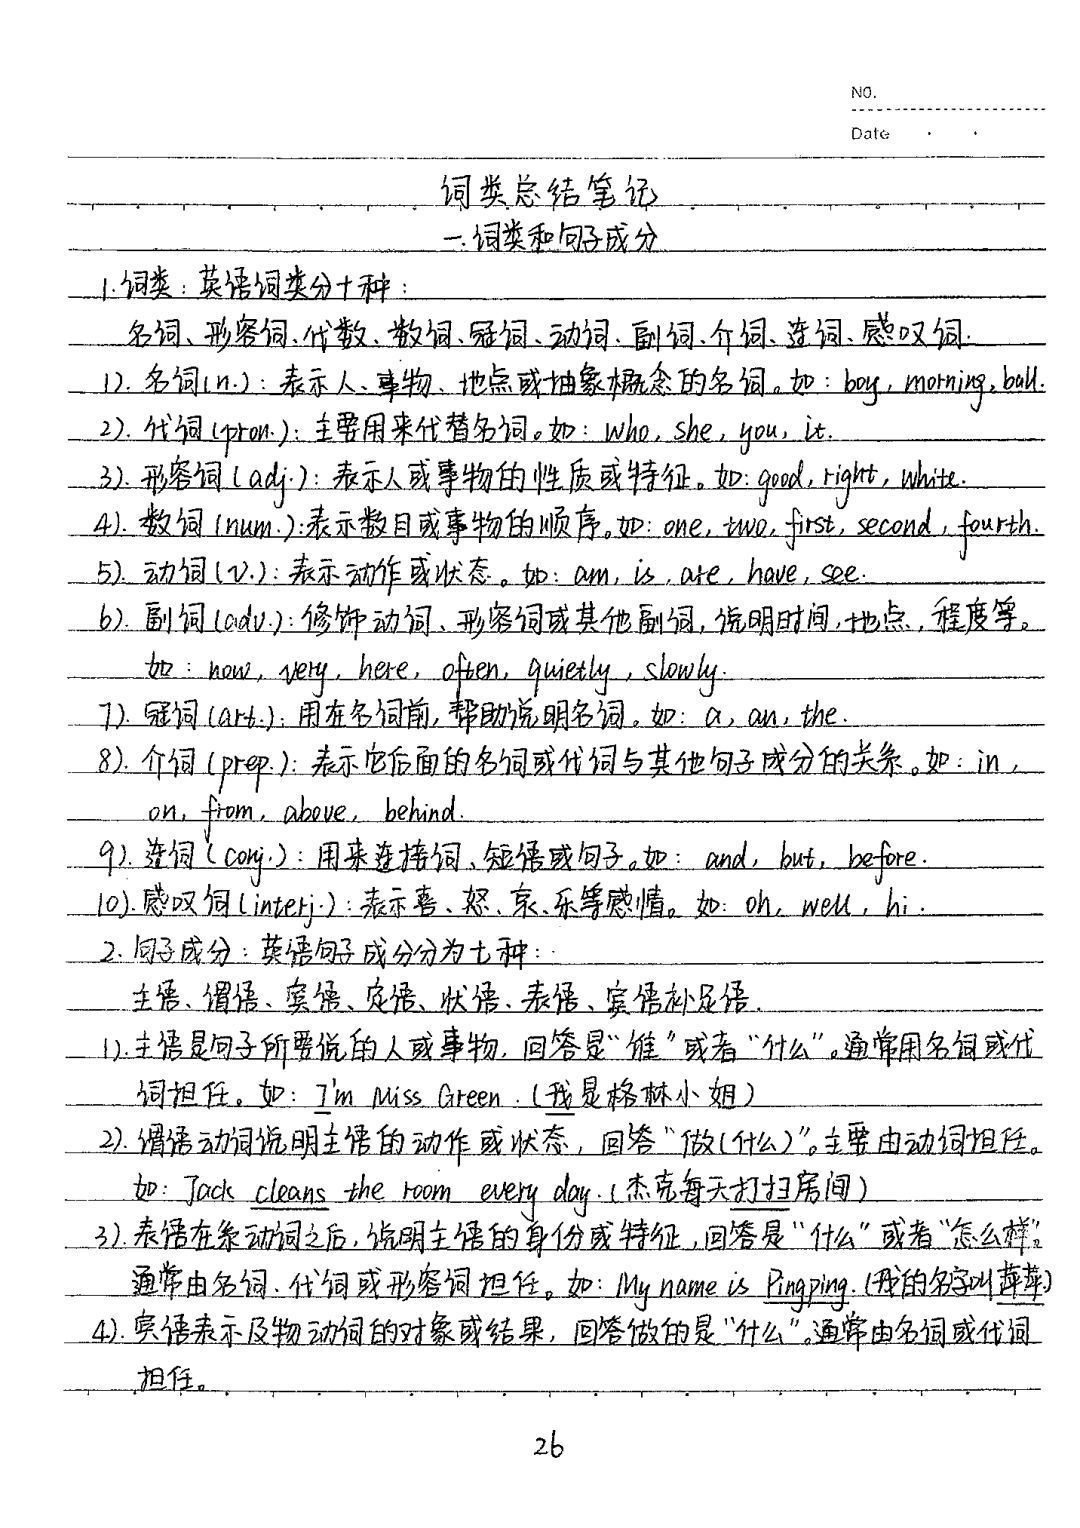 NO.
Date
词类总结笔记
一.词类和句子成分
1.词类：英语词类分十种：
名词、形容词、代数、数词、冠词、动词、副词、介词、连词、感叹词.
1). 名词(n.)：表示人、事物、地点或抽象概念的名词。如：boy, morning, ball.
2). 代词(pron.)：主要用来代替名词。如：who, she, you, it.
3). 形容词(adj.)：表示人或事物的性质或特征。如：good, right, white.
4). 数词(num.)：表示数目或事物的顺序。如：one, two, first, second, fourth.
5). 动词(v.)：表示动作或状态。如：am, is, are, have, see.
6). 副词(adv.)：修饰动词、形容词或其他副词，说明时间，地点，程度等。
如：now, very, here, often, quietly, slowly.
7). 冠词(art.)：用在名词前，帮助说明名词。如：a, an, the.
8). 介词(prep.)：表示它后面的名词或代词与其他句子成分的关系。如：in,
on, from, above, behind.
9). 连词(conj.)：用来连接词、短语或句子。如：and, but, before.
10). 感叹词(interj.)：表示喜、怒、哀、乐等感情。如：oh, well, hi.
2. 句子成分：英语句子成分分为七种：
主语、谓语、宾语、定语、状语、表语、宾语补足语.
1). 主语是句子所要说的人或事物，回答是“谁”或者“什么”。通常用名词或代
词担任。如：I'm Miss Green.(我是格林小姐)
2). 谓语动词说明主语的动作或状态，回答“做(什么)”。主要由动词担任。
如：Jack cleans the room every day.(杰克每天打扫房间)
3). 表语在系动词之后，说明主语的身份或特征，回答是“什么”或者“怎么样”。
通常由名词、代词或形容词担任。如：My name is Pingping.(我的名字叫萍萍)
4). 宾语表示及物动词的对象或结果，回答做的是“什么”。通常由名词或代词
担任。
26